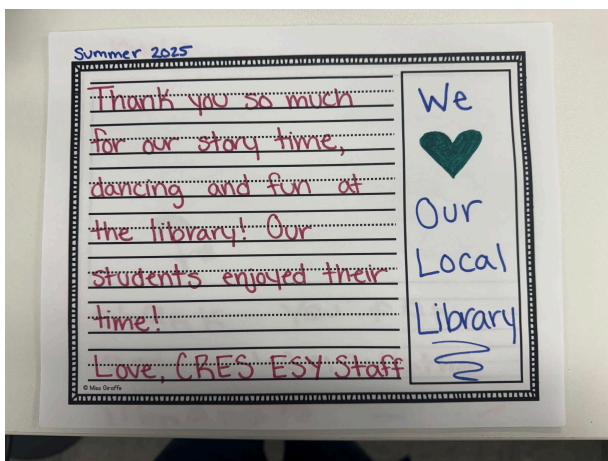 Summer 2025
Thank you so much
for our story time,
dancing and fun at
the library! Our
students enjoyed their
time!
Love, CRES ESY Staff
© Miss Giraffe
We
Our
Local
Library